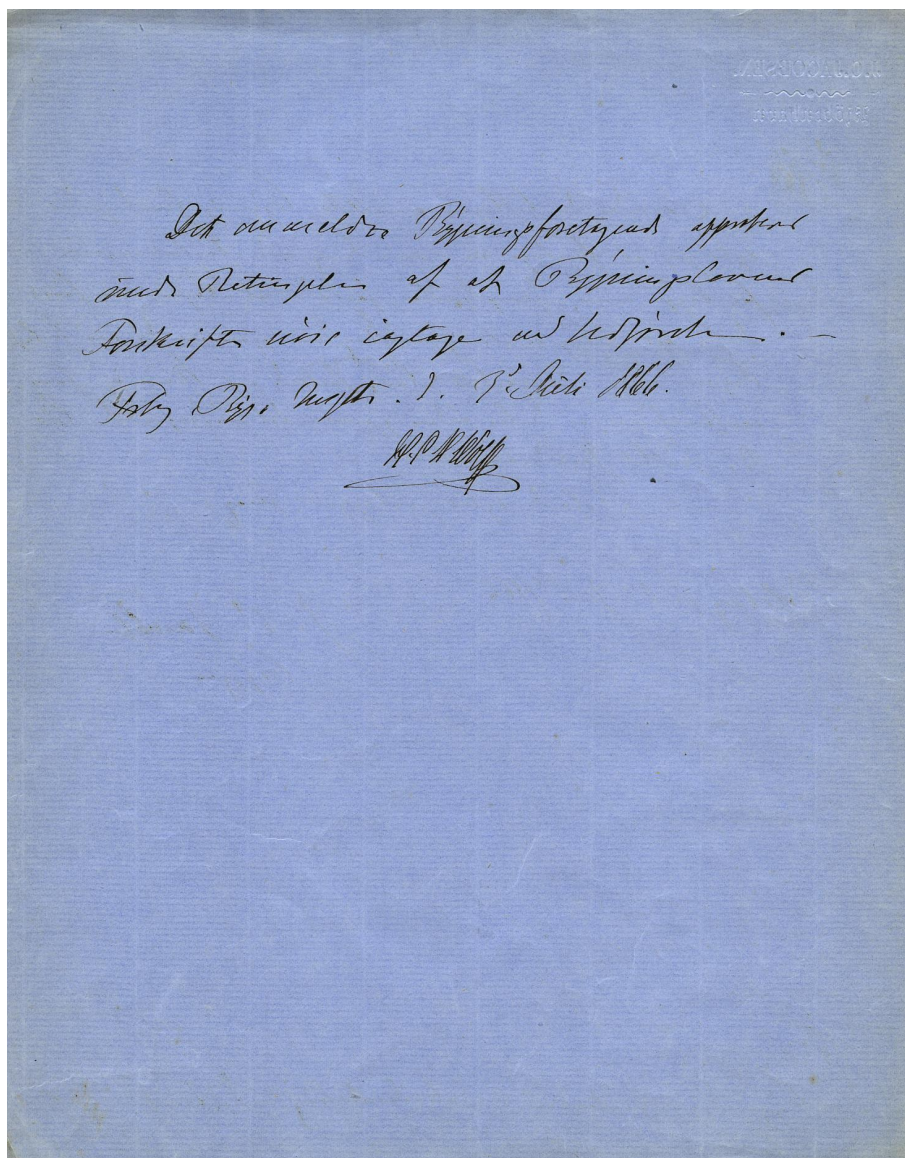 Det anmeldte Bygningsforetagende approberes
under Betingelse af at Bygningslovens
Forskrifter nöie iagttages ved Udförelsen. —
Bygn. d. 3 Juli 1866.